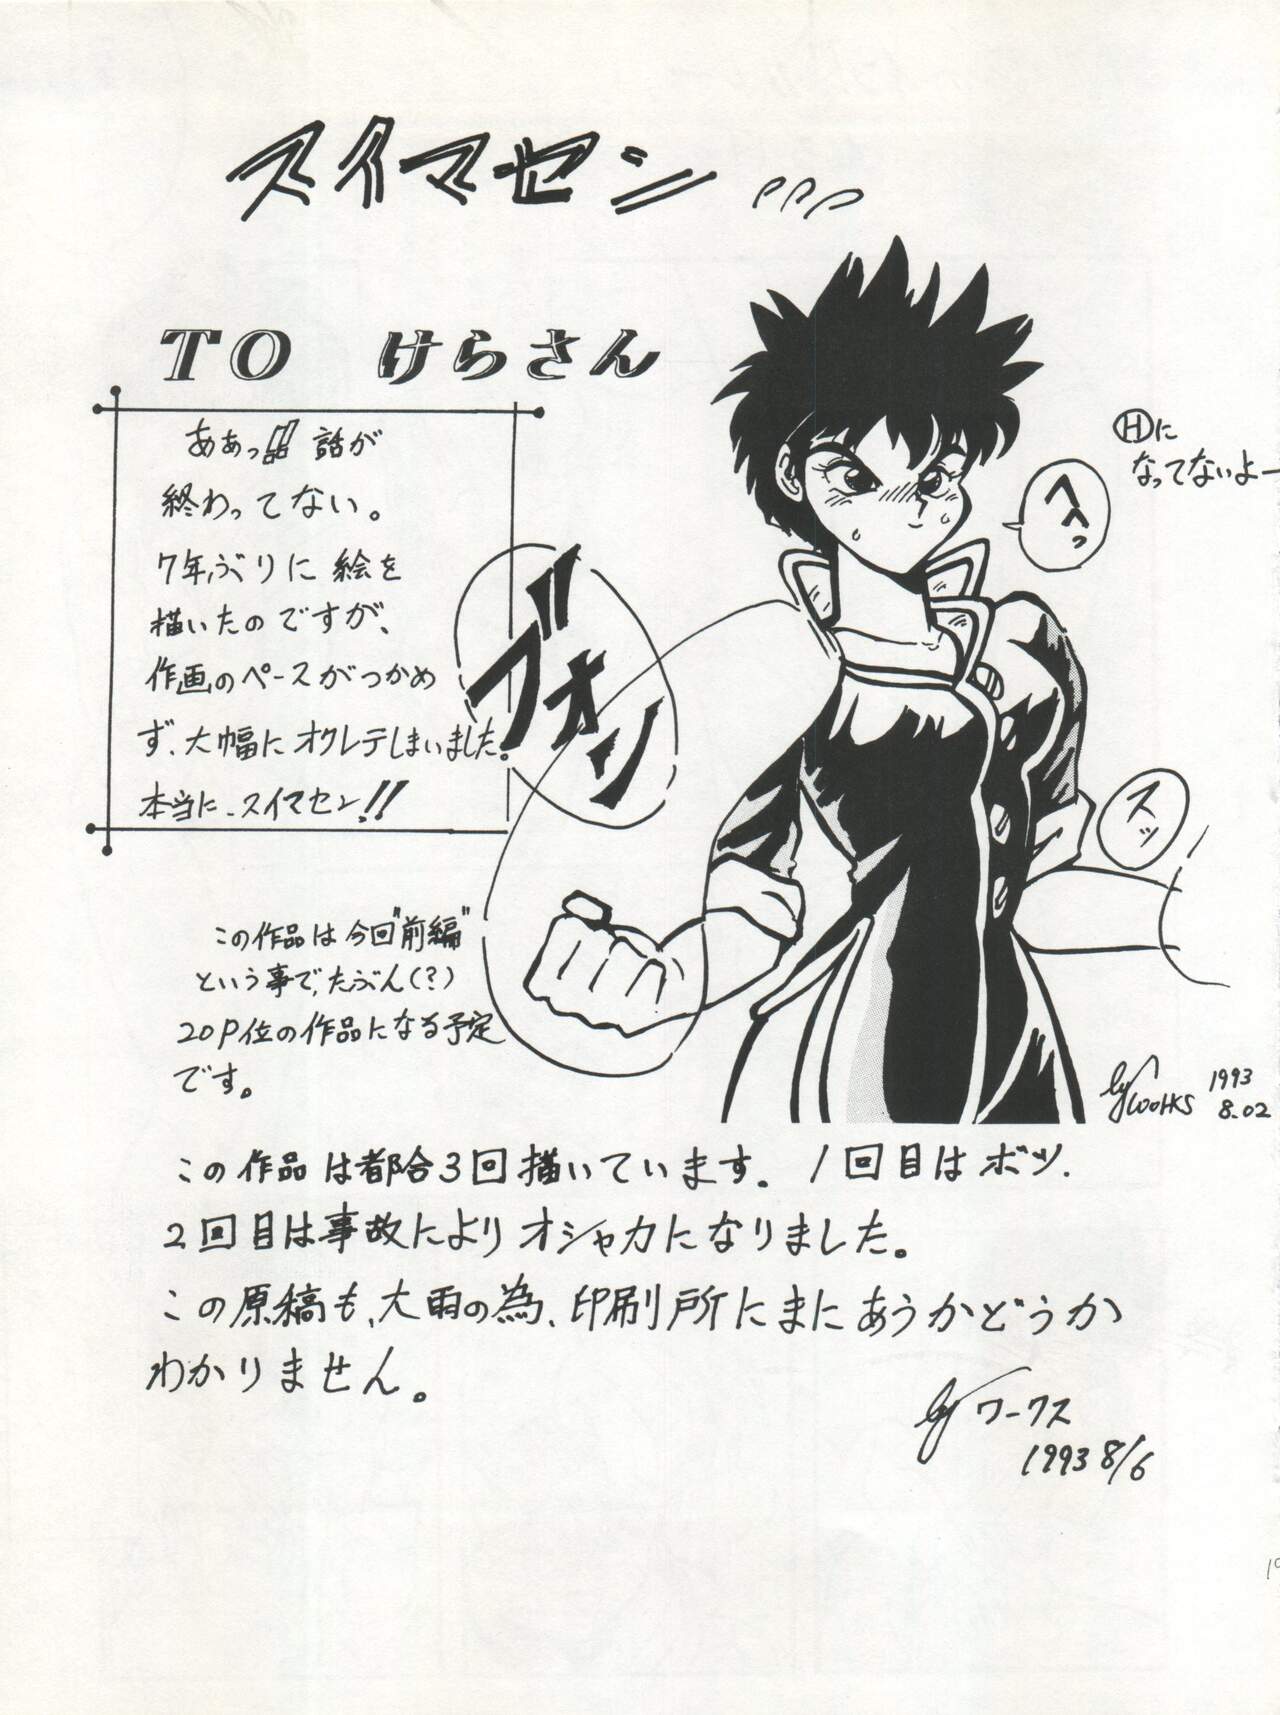 スイマセン
TO けらさん
あぁっ!! 話が
終わってない。
7年ぶりに絵を
描いたのですが、
作画のペースがつかめ
ず、大幅にオクレテしまいました。
本当に、スイマセン!!
ブオン
Ⓗに
なってないよー
へへっ
スッ
この作品は今回"前編"
という事で、たぶん(?)
20P位の作品になる予定
です。
by WORKS 1993
8.02
この作品は都合3回描いています。1回目はボツ、
2回目は事故によりオシャカになりました。
この原稿も、大雨の為、印刷所にまにあうかどうか
わかりません。
by ワークス
1993 8/6